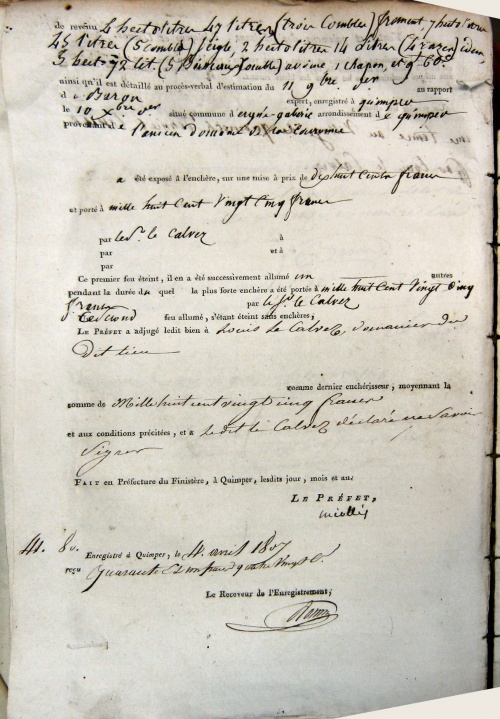 de revenu 4 hectolitres 47 litres (trois combles) froment, 7 hectolitres
45 litres (5 combles) seigle, 2 hectolitres 14 litres (4 razes) idem
3 hecto 72 lit (5 comble) avoine 1 chapon, et 9f 60c
ainsi qu'il est détaillé au procès-verbal d'estimation du 11 9bre der au rapport
d u Baron expert, enregistré à quimper
le 10 Xbre der situé commune d ergué-gaberic arrondissement de quimper
provenant de l'ancien domaine de la couronne
a été exposé à l'enchère, sur une mise à prix de dix huit cents francs
et porté à mille huit cent vingt cinq francs
par le Sr. le Calvez à
par et à
par
Ce premier feu éteint, il en a été successivement allumé un autres
pendant la durée du quel la plus forte enchère a été portée à mille huit cent vingt cinq
francs par le Sr. le Calvez
Le second feu allumé, s'étant éteint sans enchères,
Le Préfet a adjugé ledit bien à Louis Le Calvez, domanier du
dit lieu
comme dernier enchérisseur, moyennant la
somme de Mille huit cent vingt cinq francs
et aux conditions précitées, et a le dit le Calvez déclaré ne savoir
signer
Fait en Préfecture du Finistère, à Quimper, lesdits jour, mois et an.
Le Préfet,
miollis
41. 80. Enregistré à Quimper, le 4 avril 1807
reçu Quarante un francs quatre vingt c.
Le Receveur de l'Enregistrement,